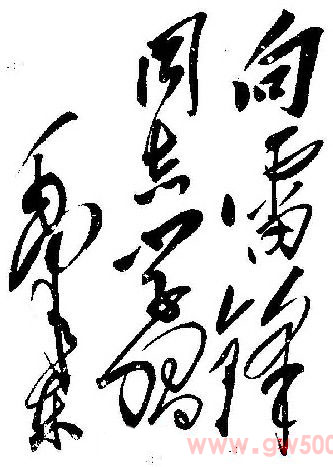 向雷锋
同志学习
毛泽东
www.gw500